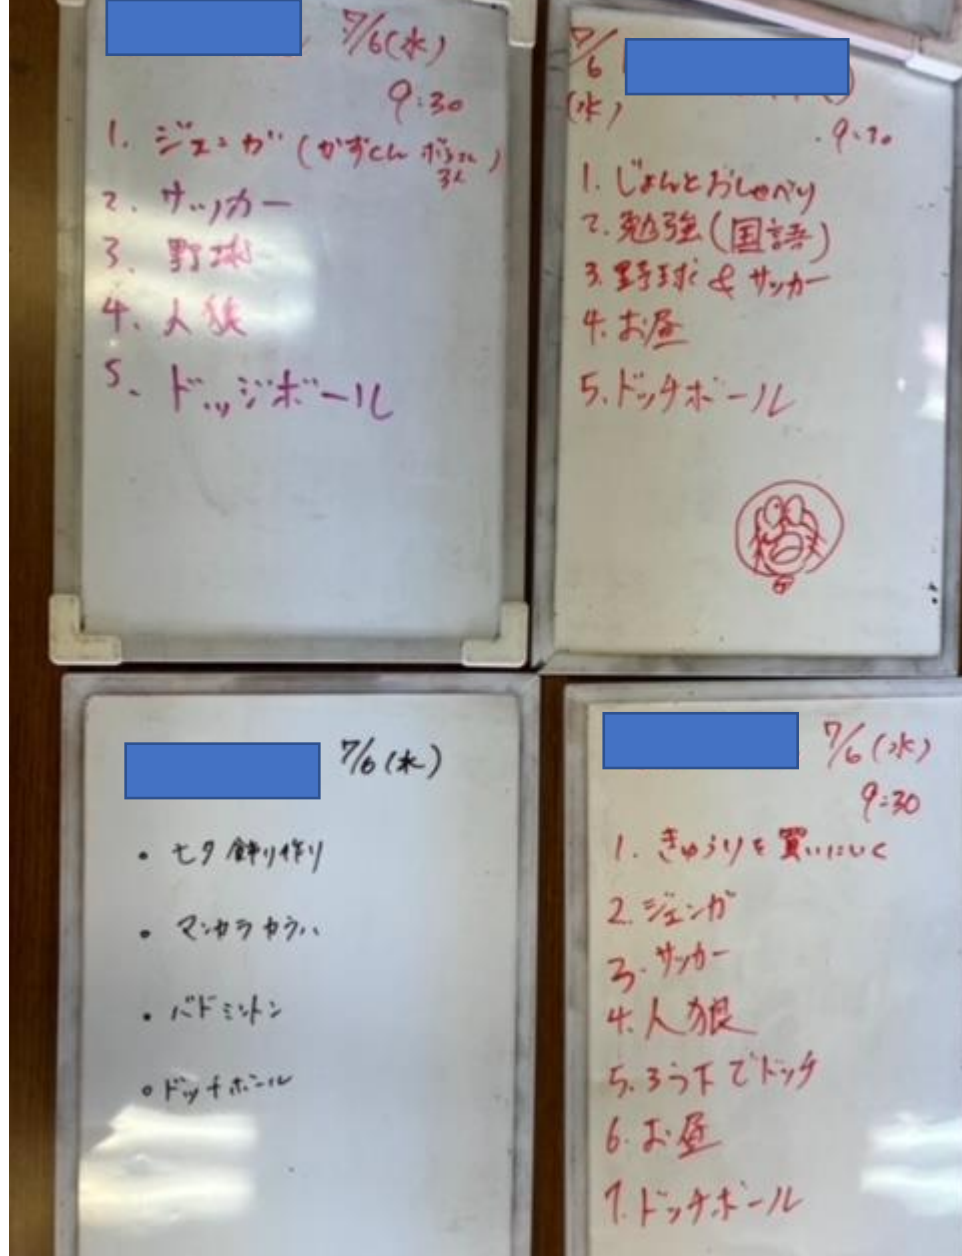 7/6(水)
9:30
1. ジェンガ(かずくん
2. サッカー
3. 野球
4. 人狼
5. ドッジボール
7/6
(水)
9:30
1. じょんとおしゃべり
2. 勉強(国語)
3. 野球&サッカー
4. お昼
5. ドッチボール
7/6(水)
• 七夕飾り作り
• マンカラカラハ
• バドミントン
• ドッチボール
7/6(水)
9:30
1. きゅうりを買いにいく
2. ジェンガ
3. サッカー
4. 人狼
5. ろう下でドッヂ
6. お昼
7. ドッチボール